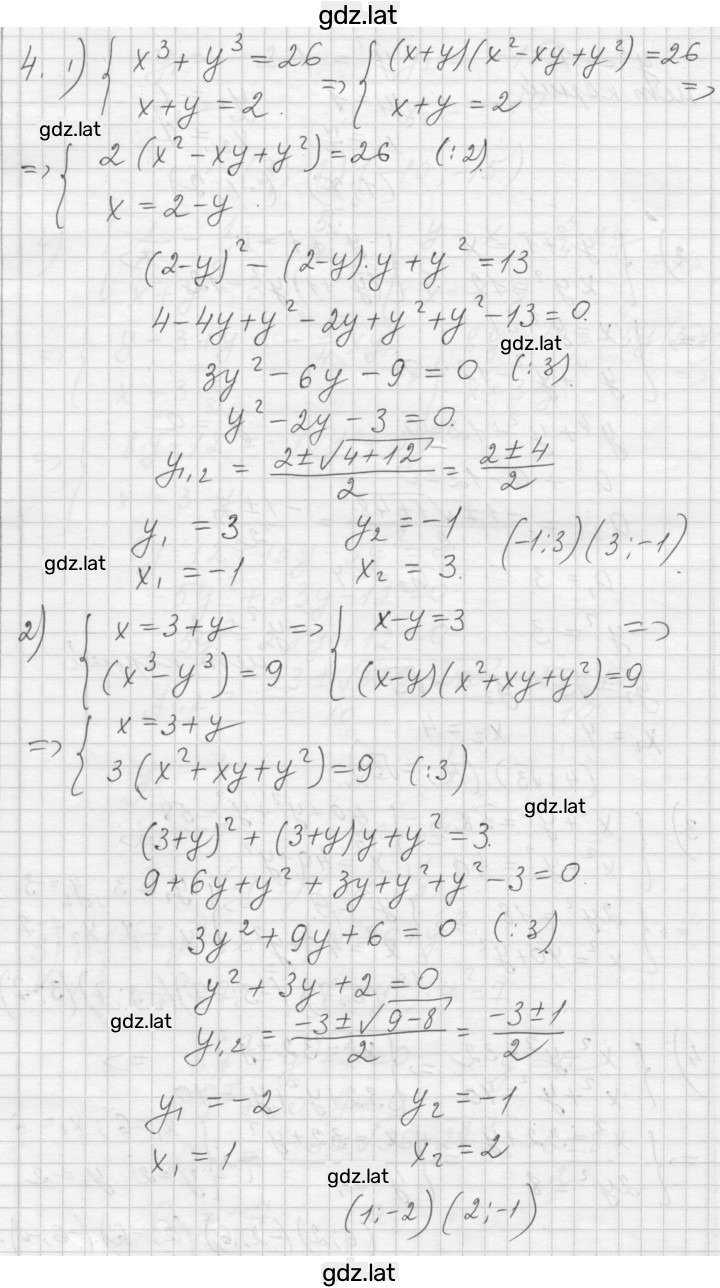 gdz.lat
4. 1) { x³ + y³ = 26 => { (x+y)(x² - xy + y²) = 26
x + y = 2. { x + y = 2 =>
gdz.lat
=> { 2 (x² - xy + y²) = 26 (:2).
x = 2 - y.
(2-y)² - (2-y)·y + y² = 13
4 - 4y + y² - 2y + y² + y² - 13 = 0.
gdz.lat
3y² - 6y - 9 = 0 (:3).
y² - 2y - 3 = 0.
y₁,₂ = (2 ± √(4+12))/2 = (2 ± 4)/2
y₁ = 3 y₂ = -1 (-1;3) (3;-1).
gdz.lat
x₁ = -1 x₂ = 3.
2) { x = 3 + y => { x - y = 3 =>
(x³ - y³) = 9 (x-y)(x² + xy + y²) = 9
=> { x = 3 + y
3 (x² + xy + y²) = 9 (:3)
gdz.lat
(3+y)² + (3+y)y + y² = 3.
9 + 6y + y² + 3y + y² + y² - 3 = 0.
3y² + 9y + 6 = 0 (:3).
y² + 3y + 2 = 0
gdz.lat
y₁,₂ = (-3 ± √(9-8))/2 = (-3 ± 1)/2
y₁ = -2 y₂ = -1
x₁ = 1 x₂ = 2
gdz.lat
(1;-2) (2;-1)
gdz.lat